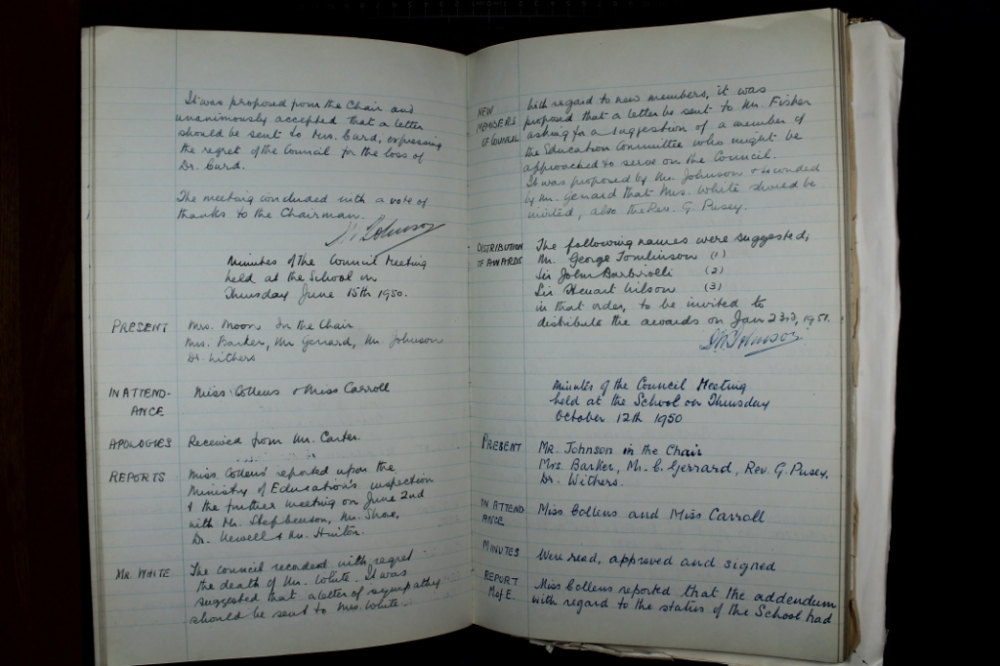 It was proposed from the Chair and
unanimously accepted that a letter
should be sent to Mrs. Curd, expressing
the regret of the Council for the loss of
Dr. Curd.
The meeting concluded with a vote of
thanks to the Chairman.
Johnson
Minutes of the Council Meeting
held at the School on
Thursday June 15th 1950.
PRESENT Mrs. Moon In the Chair
Mrs. Barker, Mr Gerrard, Mr. Johnson
Dr. Withers
IN ATTEND- Miss Collens & Miss Carroll
ANCE
APOLOGIES Received from Mr. Carter.
REPORTS Miss Collens reported upon the
Ministry of Education's inspection
& the further meeting on June 2nd
with Mr. Stephenson, Mr. Shaw,
Dr. Newell & Mr. Hunter.
MR. WHITE The council recorded with regret
the death of Mr. White. It was
suggested that a letter of sympathy
should be sent to Mrs. White.
NEW With regard to new members, it was
MEMBERS proposed that a letter be sent to Mr. Fisher
OF COUNCIL asking for a suggestion of a member of
the Education Committee who might be
approached to serve on the Council.
It was proposed by Mr. Johnson & seconded
by Mr. Gerrard that Mrs. White should be
invited, also the Rev. G. Pusey.
DISTRIBUTION The following names were suggested,
OF AWARDS Mr. George Tomlinson (1)
Sir John Barbirolli (2)
Sir Steuart Wilson (3)
in that order, to be invited to
distribute the awards on Jan 23rd, 1951.
Johnson
Minutes of the Council Meeting
held at the School on Thursday
October 12th 1950
PRESENT MR. Johnson in the Chair
Mrs. Barker, Mr. C. Gerrard, Rev. G. Pusey,
Dr. Withers.
IN ATTEND Miss Collens and Miss Carroll
ANCE
MINUTES Were read, approved and signed
REPORT Miss Collens reported that the addendum
M of E. with regard to the status of the School had